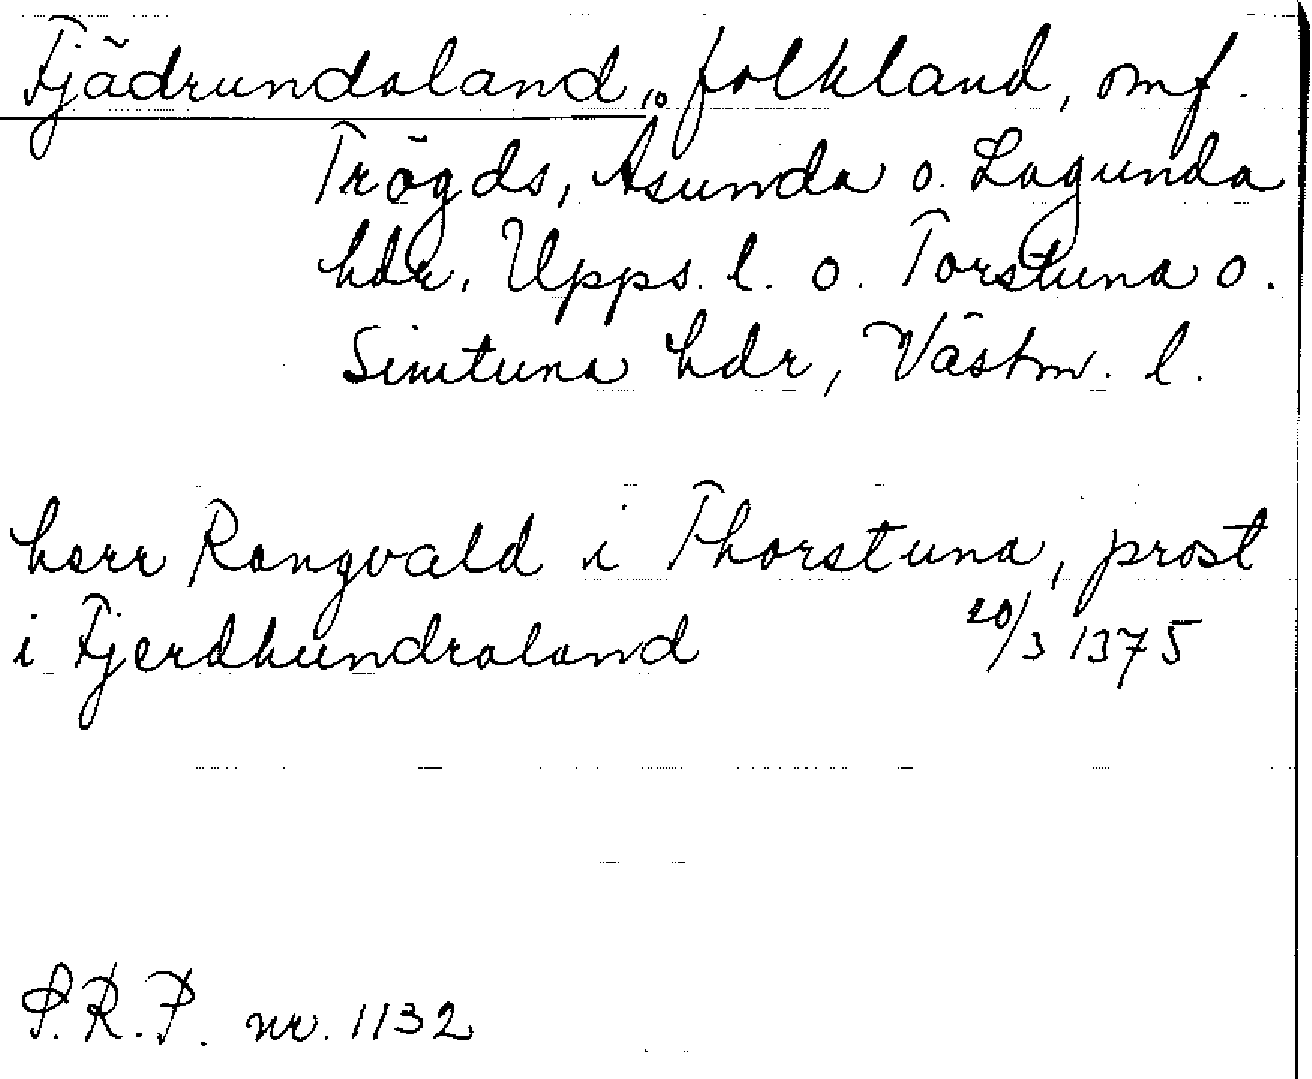 Fjädrundaland, folkland, omf.
Trögds, Åsunda o. Lagunda
hdr, Upps. l. o. Torstuna o.
Simtuna hdr, Västm. l.
herr Rangvald i Thorstuna, prost
i Fjerdhundraland 20/3 1375
S.R.P. nr. 1132